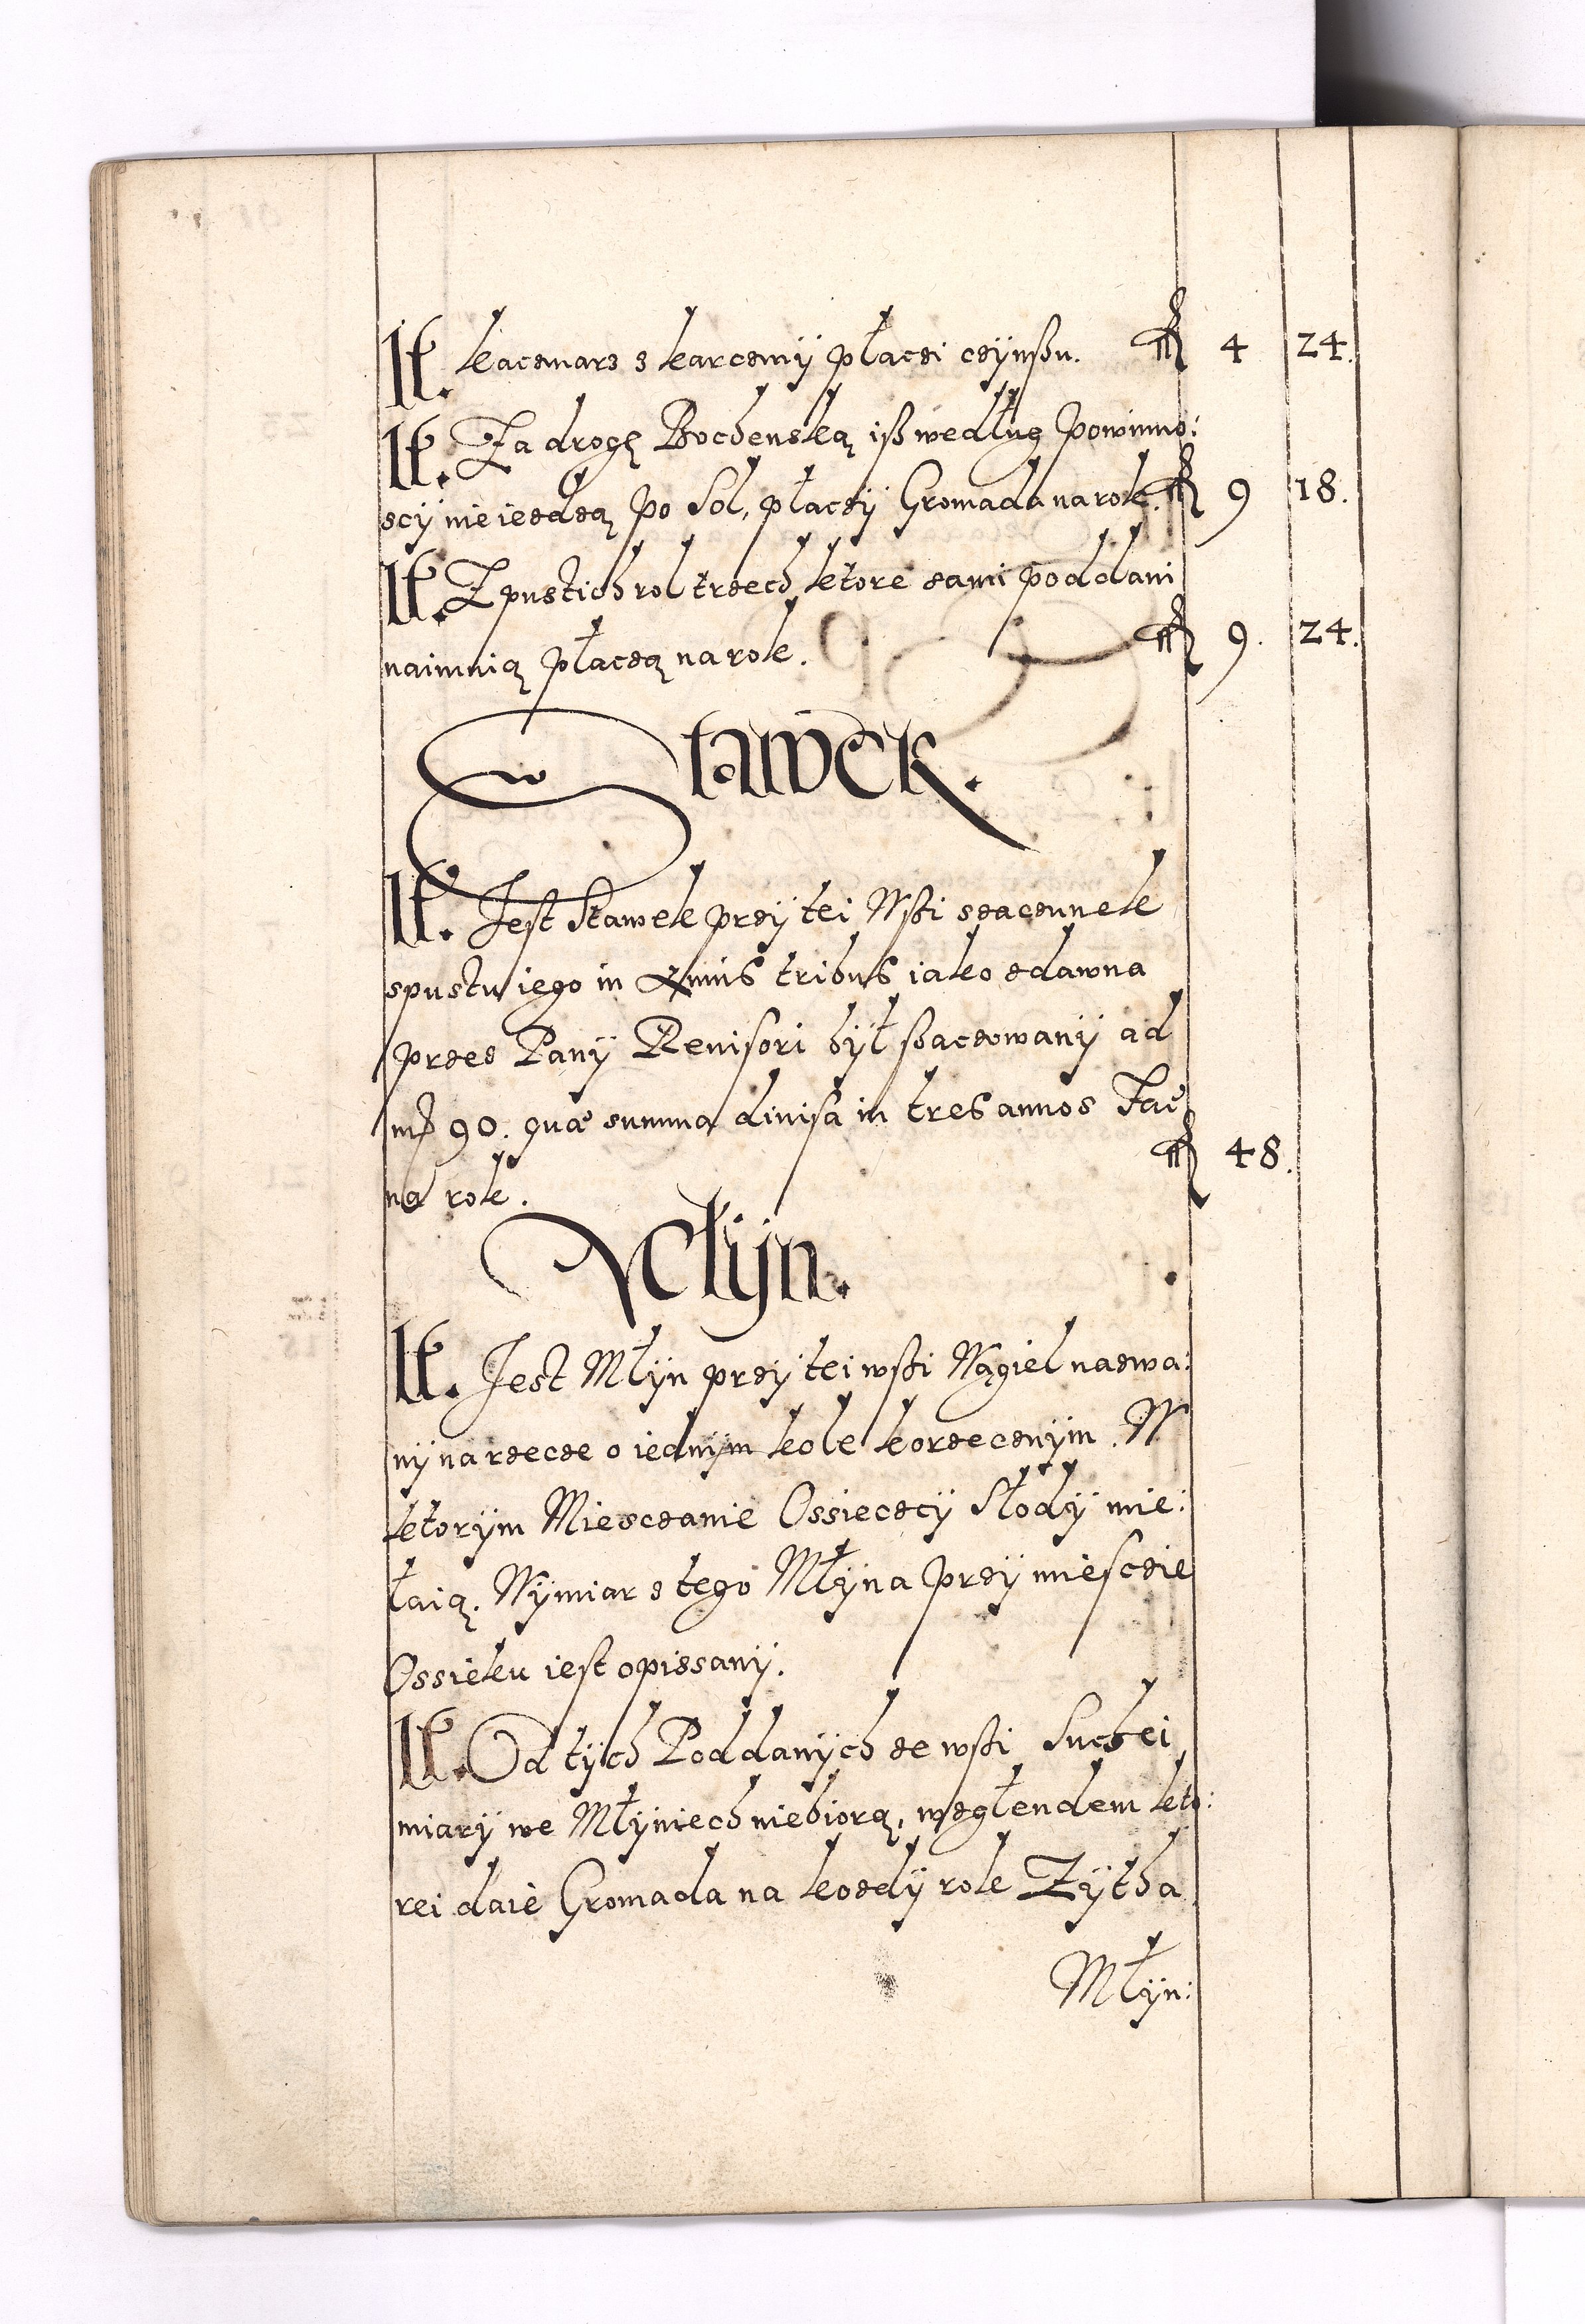 It. kaczmarz z karczmÿ płaczi czÿnßu. fl 4 24.
It. Za drogę Bochenską iß według Powinno:
scÿ nie iezdzą po Sol, płaczÿ Gromada na rok. fl 9 18.
It. Z pustich rol trzech ktore sami poddani
naimuią płaczą na rok. fl 9. 24.
Stawek.
It. Jest Stawek przÿ tei Wßi szaczunek
spustu iego in Annis tribus iako zdawna
przez Panÿ Reuisori bÿł ßaczowanÿ ad
mf 90. quæ summa diuisa in tres annos Facit
na rok. fl 48.
Młÿn.
It. Jest Młÿn przÿ tei wßi Wągiel nazwa:
nÿ na rzecze o iednÿm kole korzecznÿm. W
ktorÿm Miesczanie Ossieczcÿ Słodÿ mie:
łaią. Wÿmiar z tego Młÿna przÿ miesczie
Ossieku iest opissanÿ.
It. Od tÿch Poddanÿch ze wßi Suchei
miarÿ we Młÿniech niebiorą, wzglendem kto:
rei daie Gromada na kozdÿ rok Zÿtha
Młÿn: